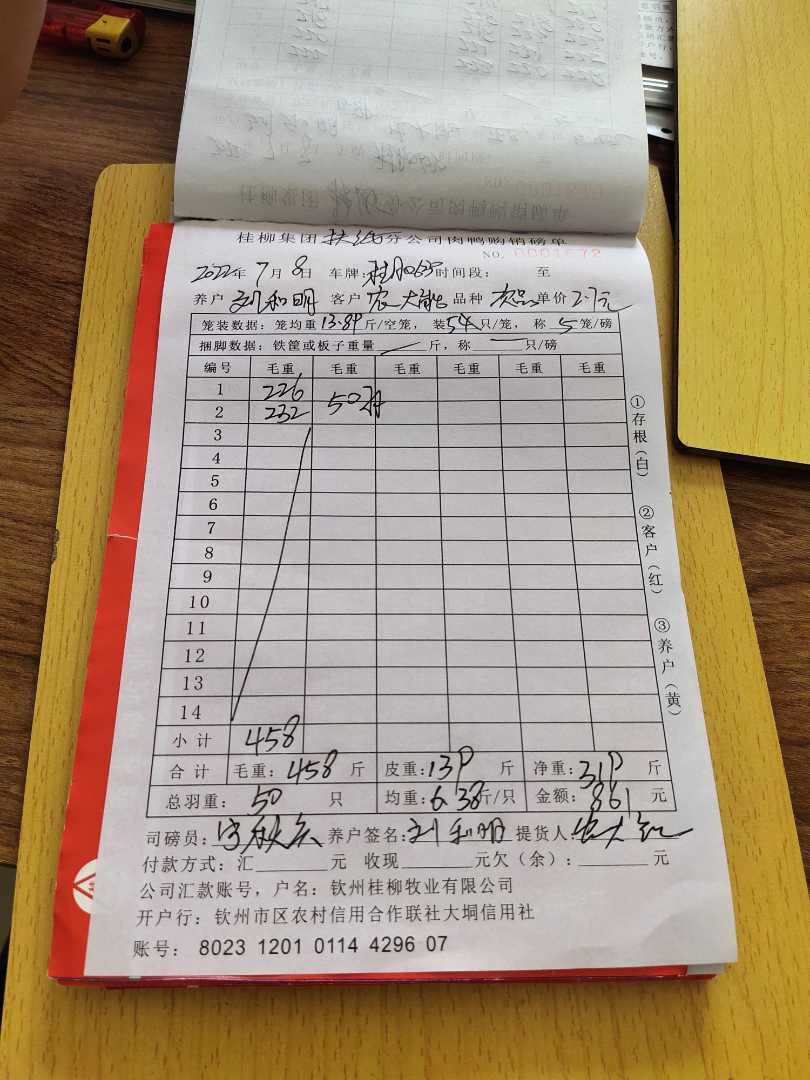 桂柳集团扶绥分公司肉鸭购销磅单
NO. 0001672
2022年7月8日 车牌: 时间段: 至
养户 刘和明 客户 农大 品种 单价 2.7元
笼装数据: 笼均重13.89斤/空笼, 装54只/笼, 称5笼/磅
捆脚数据: 铁筐或板子重量 斤, 称 只/磅
编号 毛重 毛重 毛重 毛重 毛重 毛重
1 226
2 232 50羽
3
4
5
6
7
8
9
10
11
12
13
14
小计 458
合计 毛重: 458 斤 皮重: 139 斤 净重: 319 斤
总羽重: 50 只 均重: 6.38斤/只 金额: 861 元
司磅员: 养户签名: 刘和明 提货人: 农大
付款方式: 汇 元 收现 元欠(余): 元
公司汇款账号, 户名: 钦州桂柳牧业有限公司
开户行: 钦州市区农村信用合作联社大垌信用社
账号: 8023 1201 0114 4296 07
①存根(白)
②客户(红)
③养户(黄)